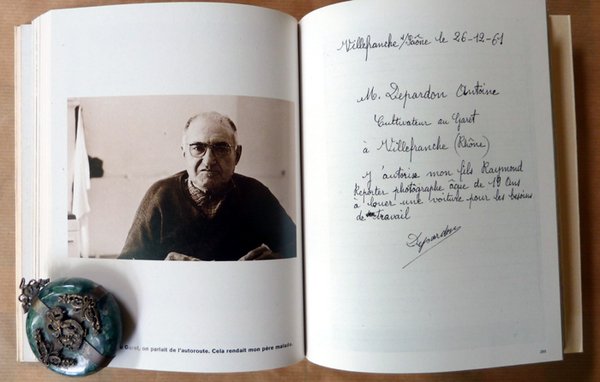 Garet, on parlait de l'autoroute. Cela rendait mon père malade.
Villefranche s/Saône le 26-12-61
M. Depardon Antoine
Cultivateur au Garet
à Villefranche (Rhône)
J'autorise mon fils Raymond
Reporter photographe âgé de 19 ans
à louer une voiture pour les besoins
de travail
Depardon